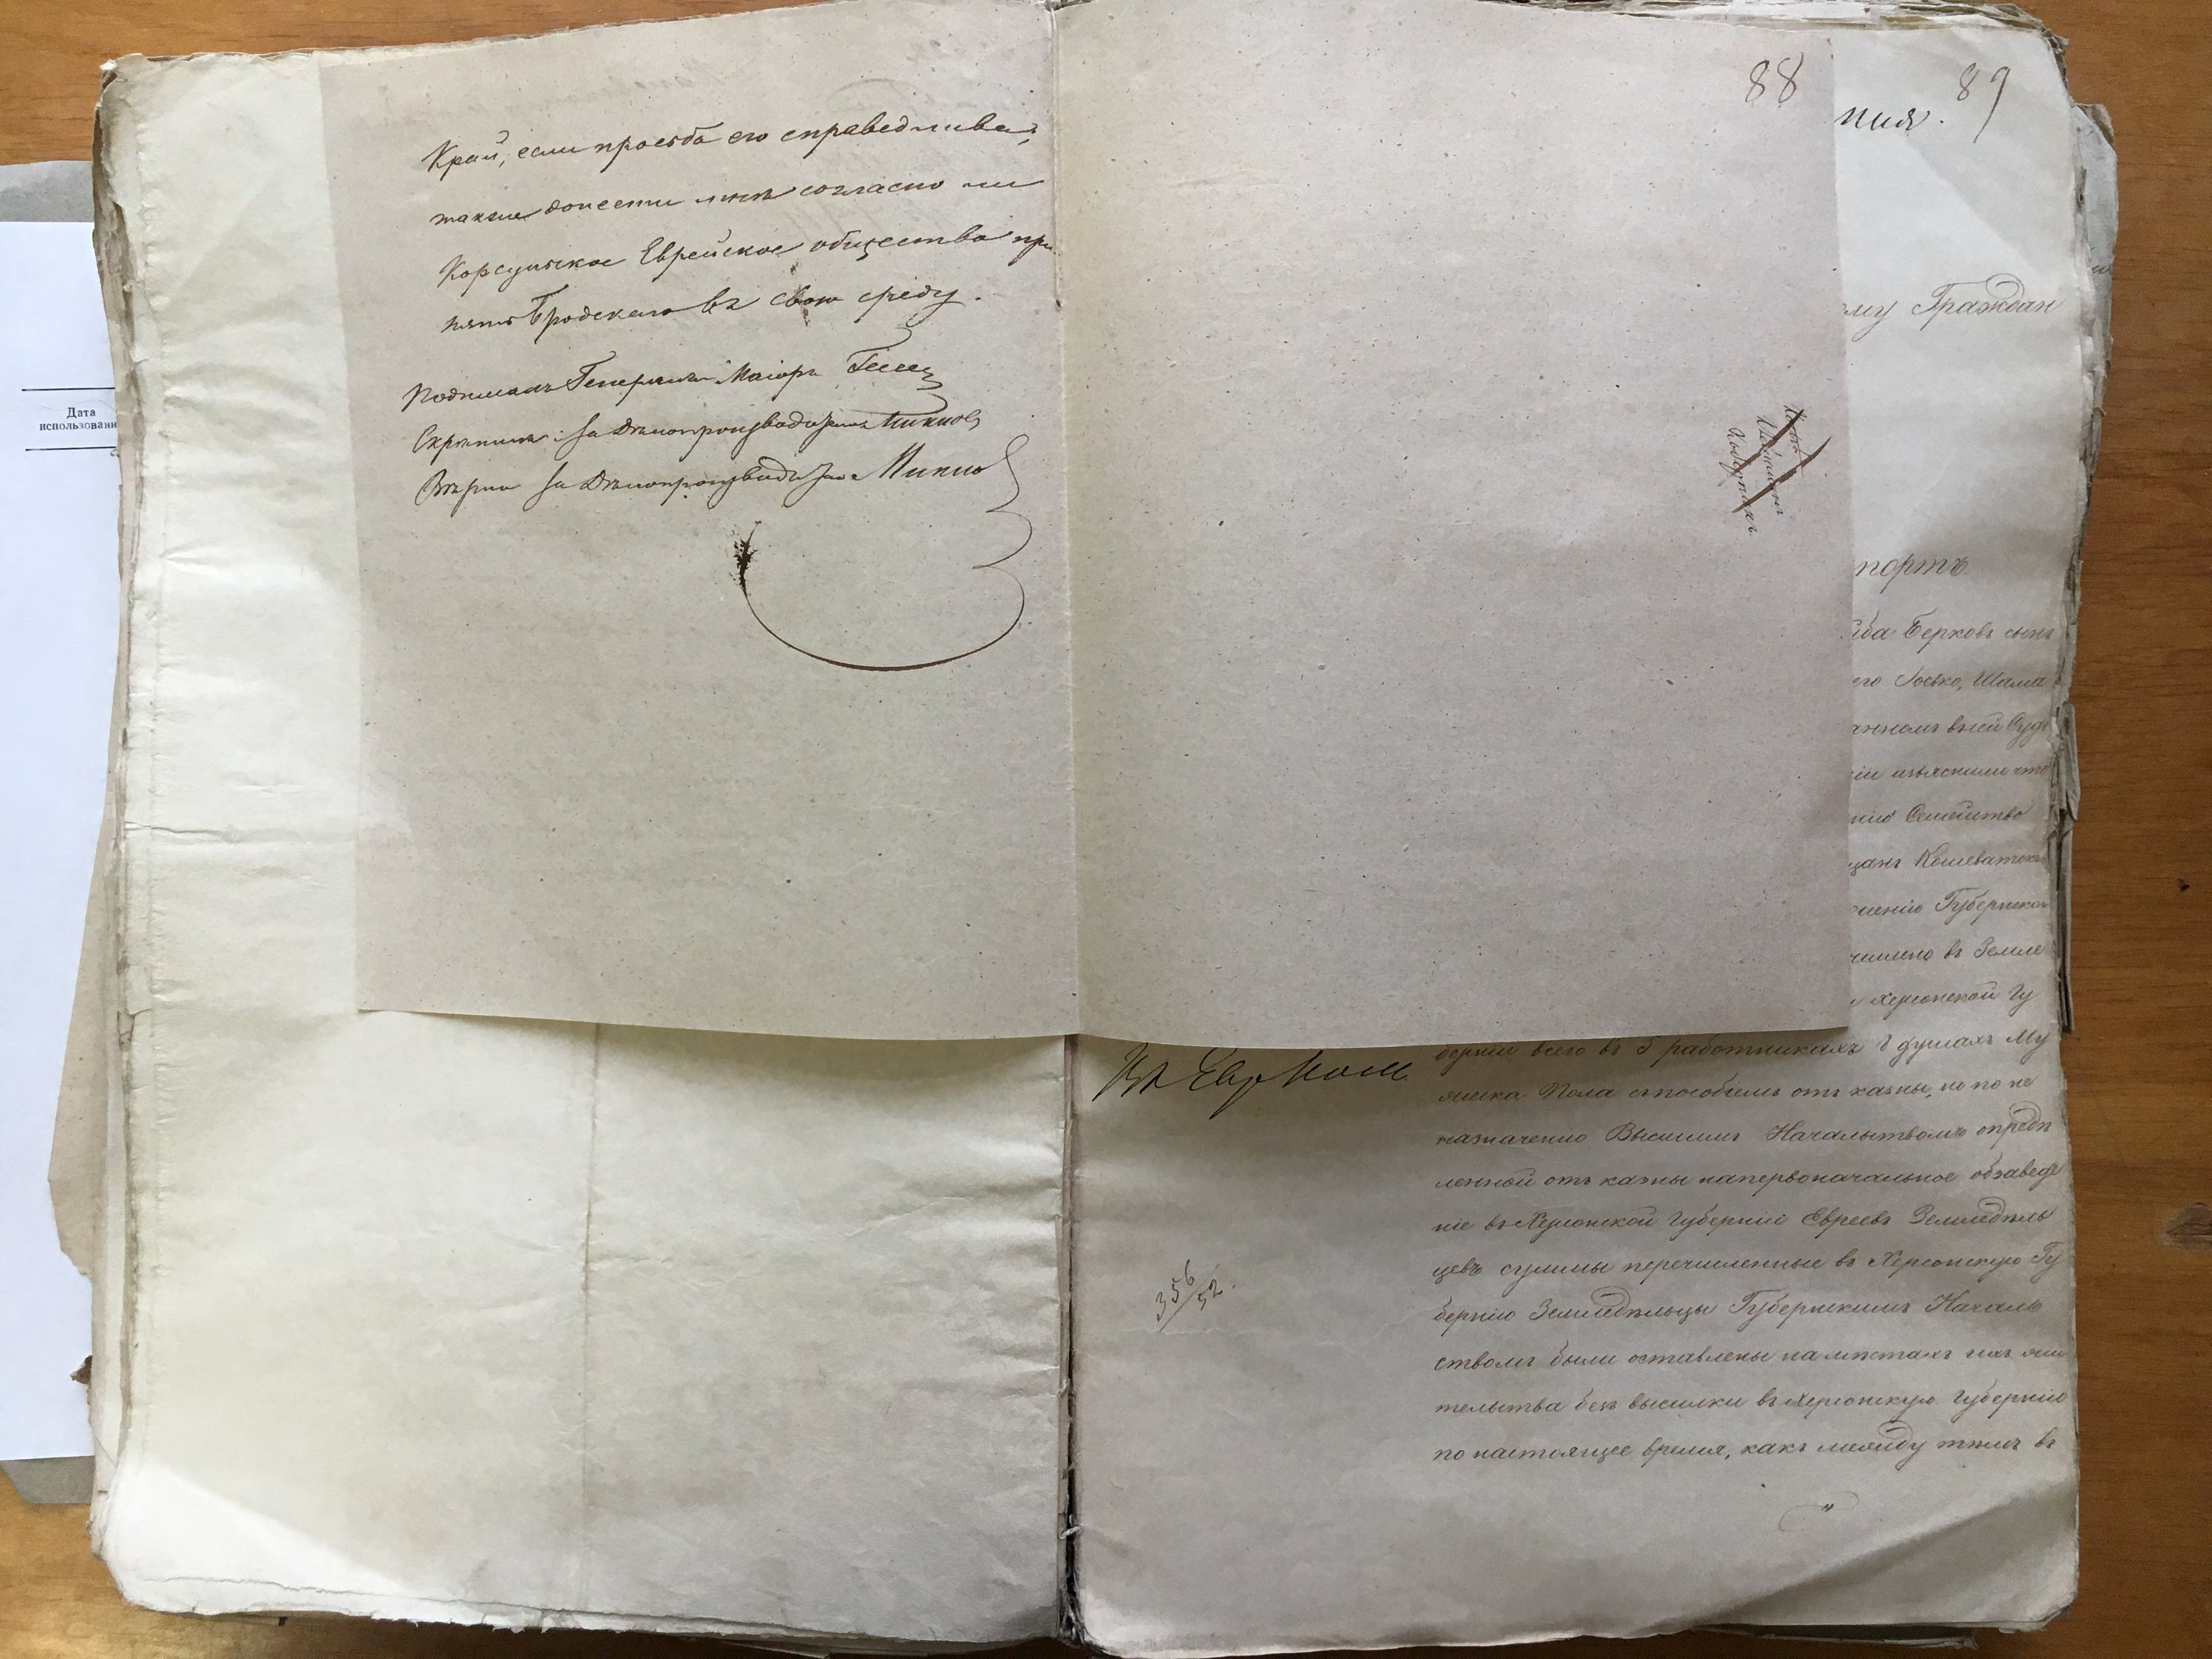 Край, если просьба его справедлива,
также донести мнѣ согласно ли
Корсунское Еврейское общество при
нять Бродскаго въ свою среду.
Подписалъ Генералъ Маіоръ Гессе
Скрѣпилъ: за Дѣлопроизводителя
Вѣрно за Дѣлопроизводителя
88
89
ния.
ому Граждан
портъ.
ба Берковъ сынъ
его Іосько, Шама
анномъ въ сей Суд
іи изъяснили что
нію Семейство
щанъ Кошеватск
ченію Губернской
числено въ Земле
Херсонской Гу
берніи всего въ 5 работникахъ 9 душахъ Му
жеска Пола съ пособіемъ отъ казны, но по не
назначенію Высшимъ Начальствомъ опредѣ
ленной отъ казны на первоначальное обзаведе
ніе въ Херсонской Губерніи Евреевъ Земледѣль
цевъ суммы перечисленные въ Херсонскую Гу
бернію Земледѣльцы Губернскимъ Началь
ствомъ были оставлены на мѣстахъ ихъ жи
тельства безъ высылки въ Херсонскую Губернію
по настоящее время, какъ между тѣмъ въ
356/52.
Дата
использовани